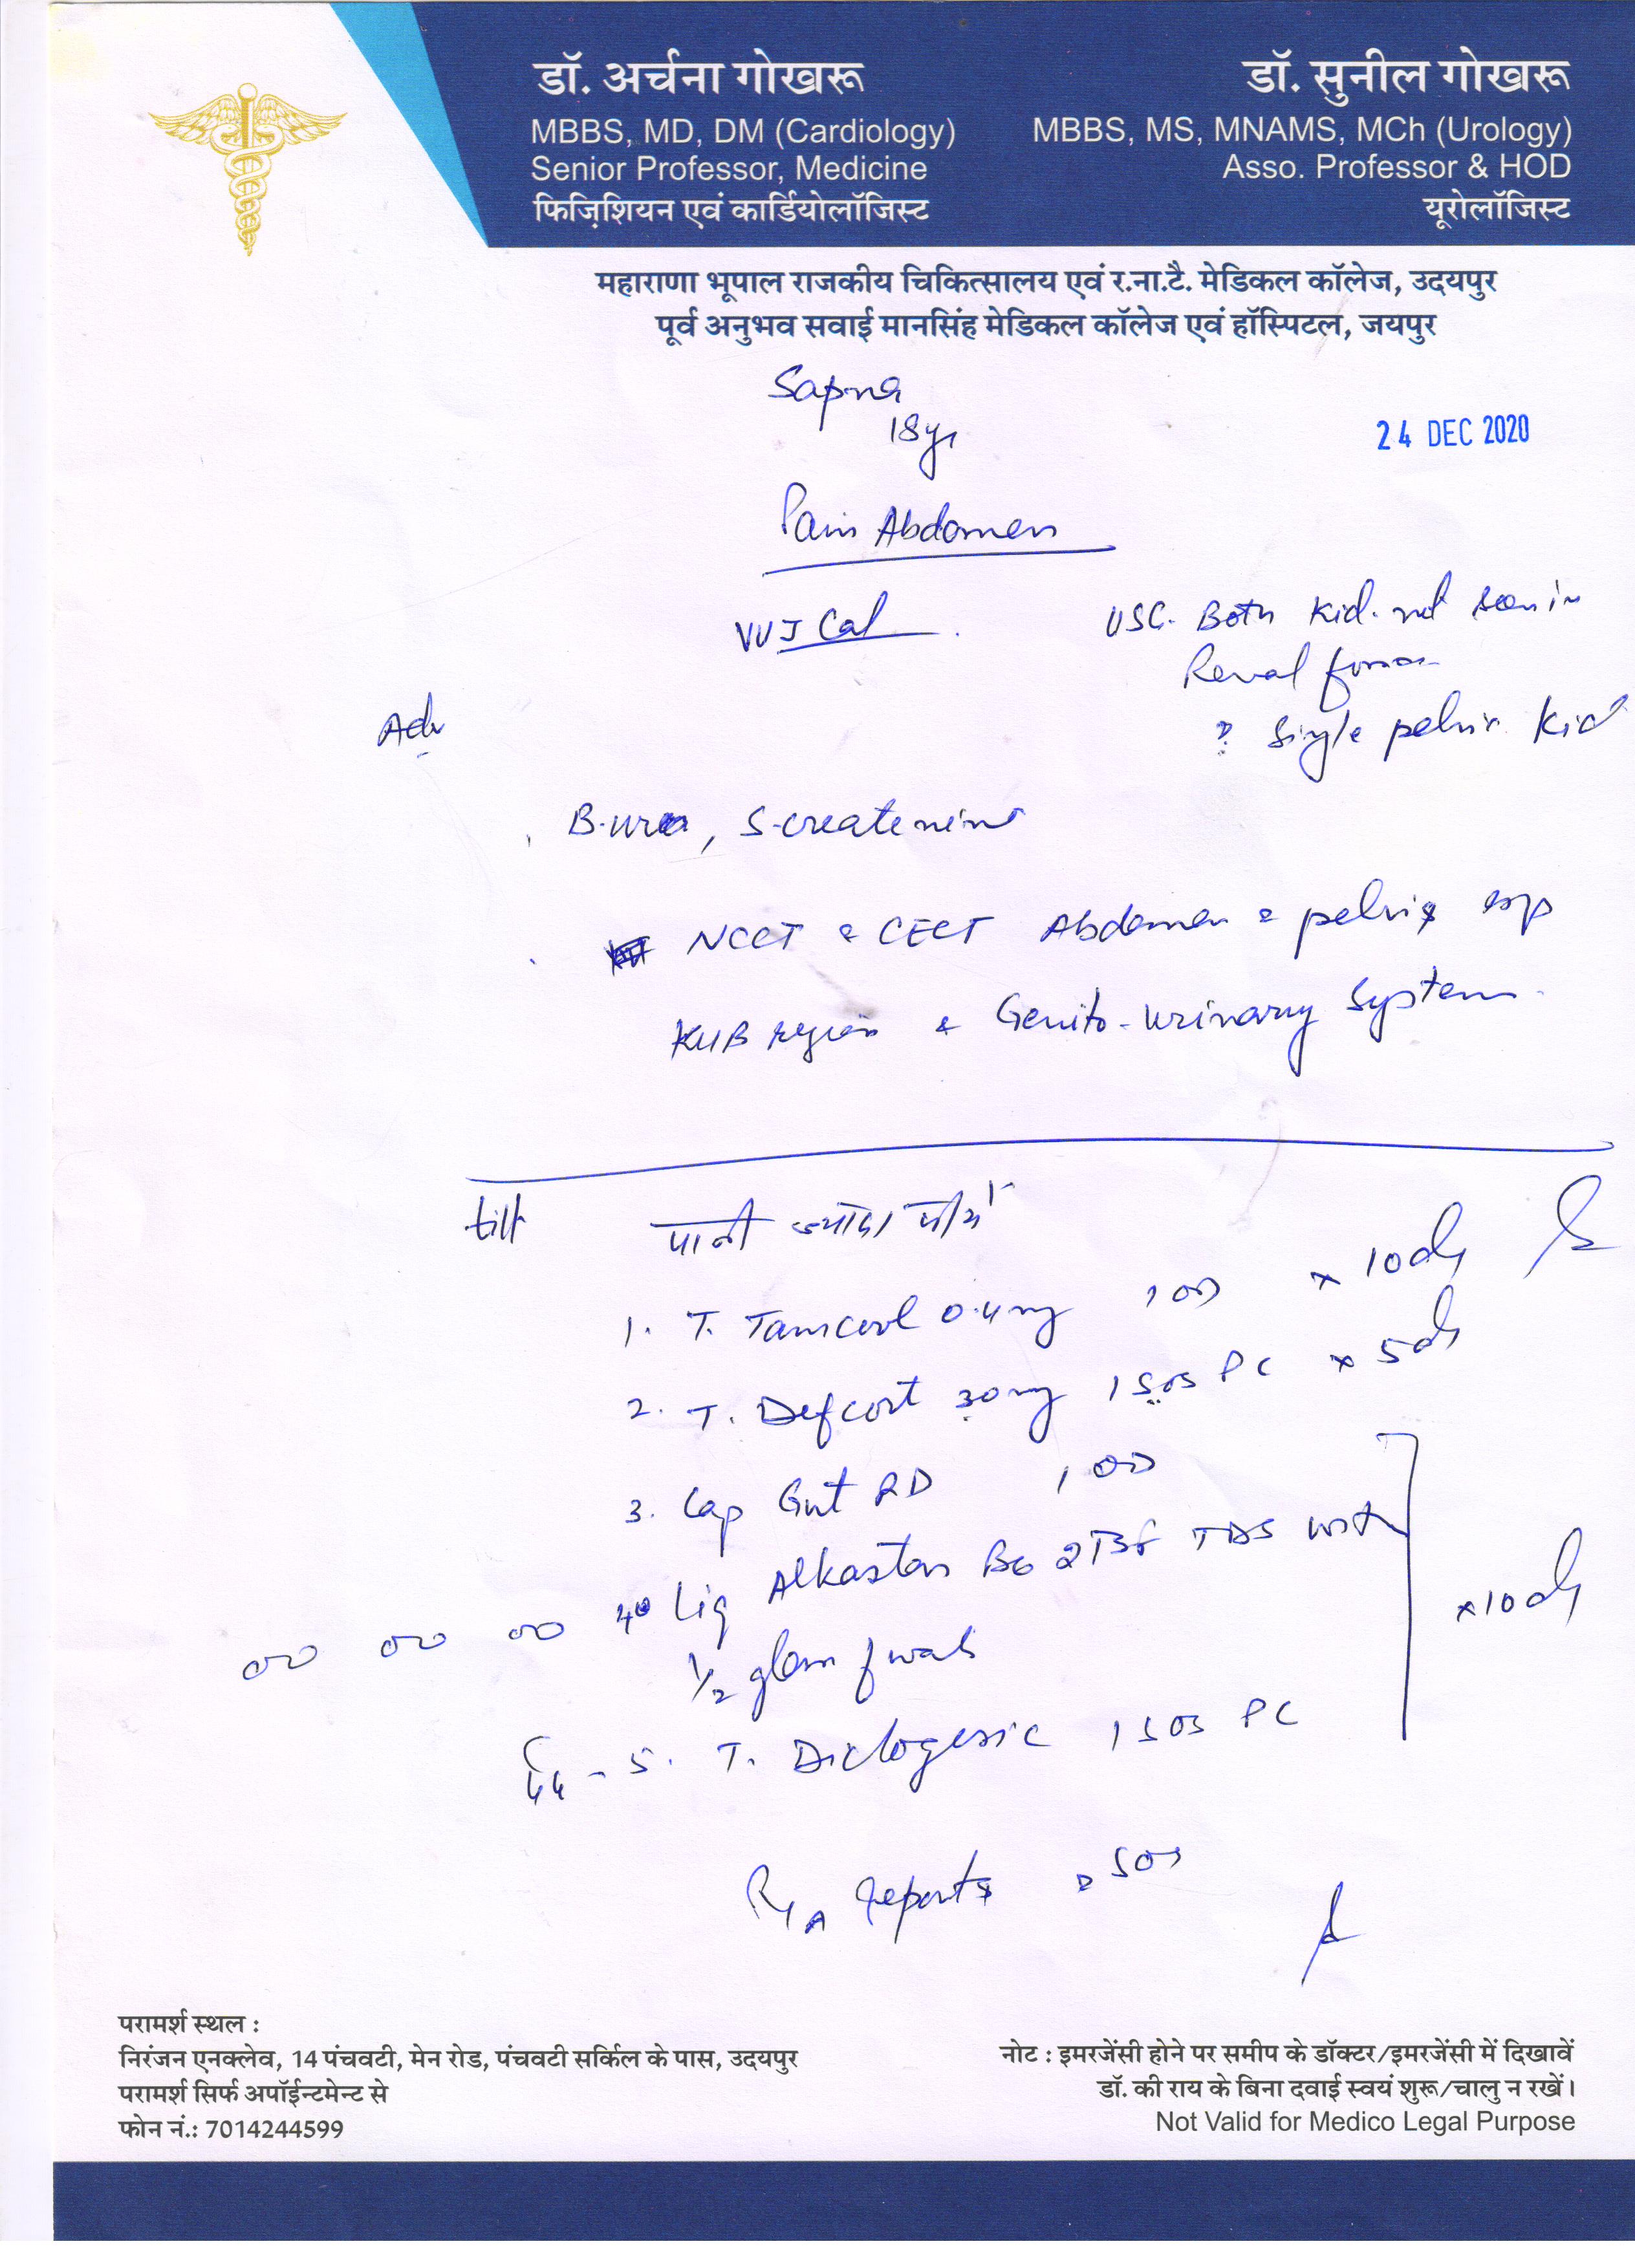 डॉ. अर्चना गोखरू
MBBS, MD, DM (Cardiology)
Senior Professor, Medicine
फिज़िशियन एवं कार्डियोलॉजिस्ट
डॉ. सुनील गोखरू
MBBS, MS, MNAMS, MCh (Urology)
Asso. Professor & HOD
यूरोलॉजिस्ट
महाराणा भूपाल राजकीय चिकित्सालय एवं र.ना.टै. मेडिकल कॉलेज, उदयपुर
पूर्व अनुभव सवाई मानसिंह मेडिकल कॉलेज एवं हॉस्पिटल, जयपुर
Sapna
18yr
24 DEC 2020
Pain Abdomen
VUJ Cal
USG. Both Kid. not seen in
Renal fossa
? Single pelvic Kid
Adv
B.urea, S-createnine
NCCT & CECT Abdomen & pelvis esp
KUB region & Genito-urinary System.
till पानी ज्यादा पीये
1. T. Tamcool 0.4mg 1 OD x 10d
2. T. Defcort 30mg 1 SOS PC x 5d
3. Cap Gut RD 1 OD
4. Liq Alkaston B6 2TSF TDS with
1/2 glass of wat
x10d
5. T. Diclogesic 1 SOS PC
R/A reports SOS
परामर्श स्थल :
निरंजन एनक्लेव, 14 पंचवटी, मेन रोड, पंचवटी सर्किल के पास, उदयपुर
परामर्श सिर्फ अपॉईन्टमेन्ट से
फोन नं.: 7014244599
नोट : इमरजेंसी होने पर समीप के डॉक्टर/इमरजेंसी में दिखावें
डॉ. की राय के बिना दवाई स्वयं शुरू/चालु न रखें।
Not Valid for Medico Legal Purpose